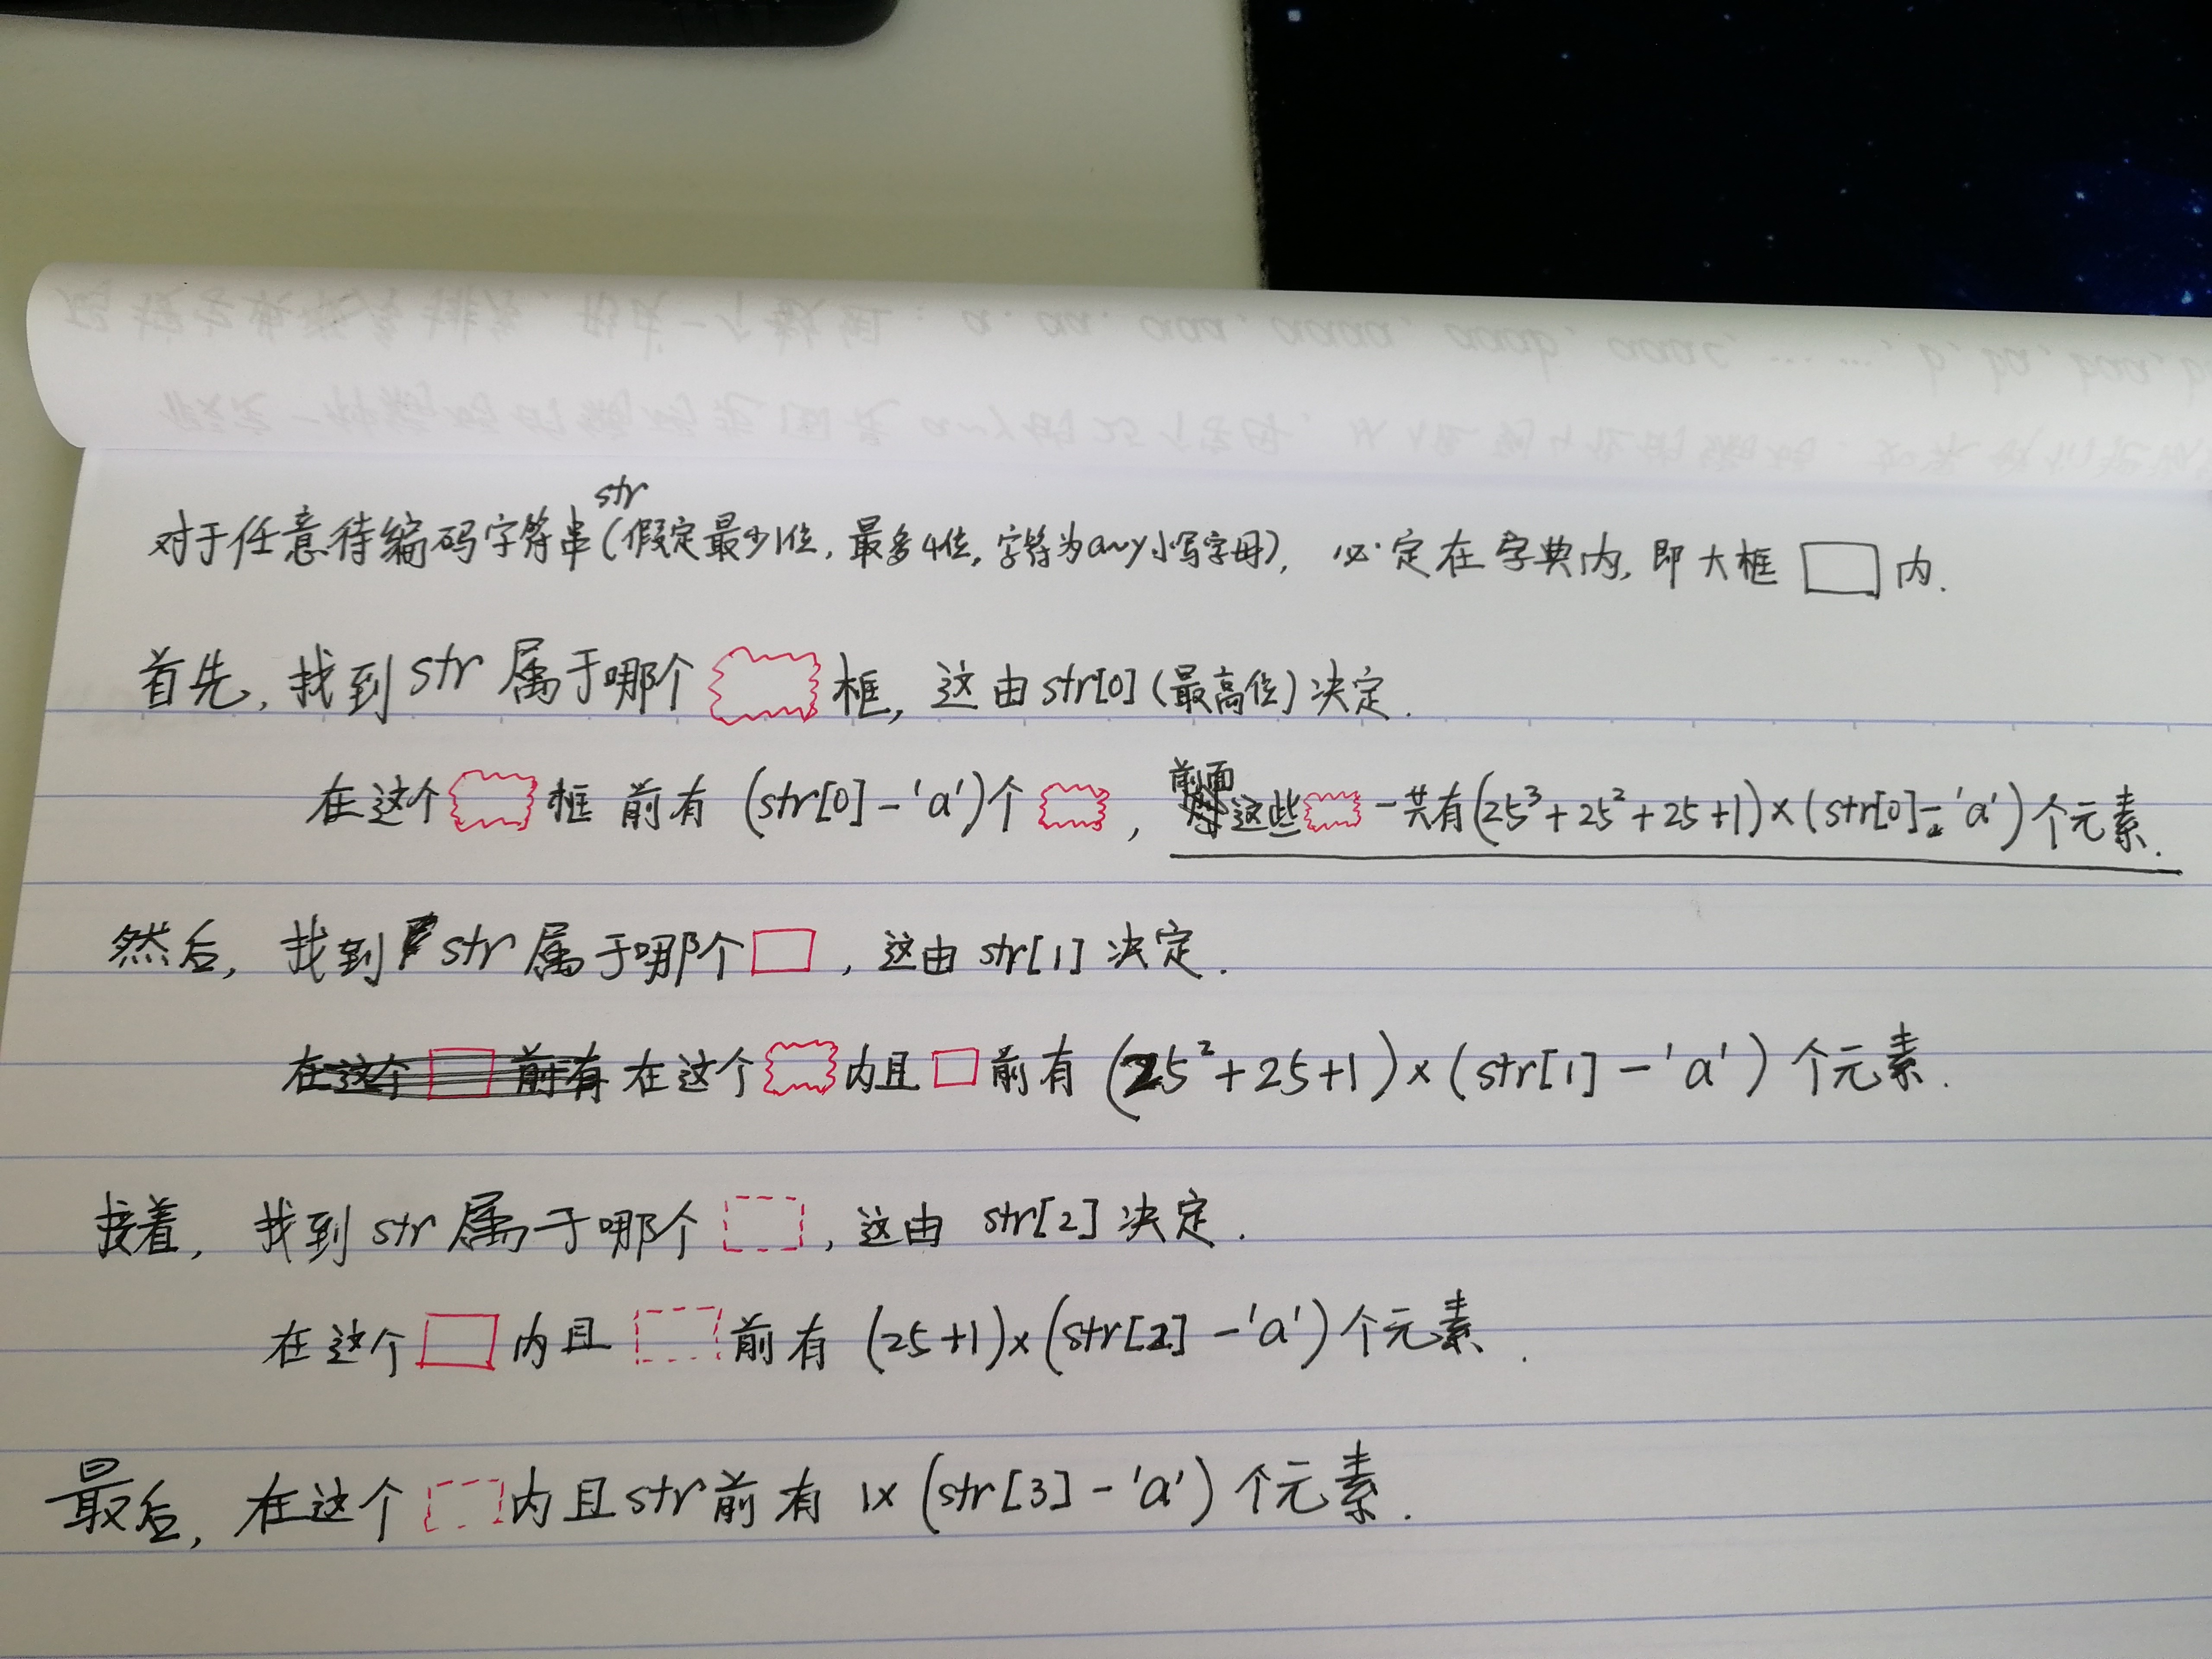 对于任意待编码字符串str(假定最少1位,最多4位,字符为a~y小写字母),必定在字典内,即大框 内.
首先,找到str属于哪个 框,这由str[0](最高位)决定.
在这个 框前有(str[0]-'a')个 ,前面这些 一共有(25³+25²+25+1)×(str[0]-'a')个元素.
然后,找到str属于哪个 ,这由str[1]决定.
在这个 前有 在这个 内且 前有(25²+25+1)×(str[1]-'a')个元素.
接着,找到str属于哪个 ,这由str[2]决定.
在这个 内且 前有(25+1)×(str[2]-'a')个元素.
最后,在这个 内且str前有1×(str[3]-'a')个元素.